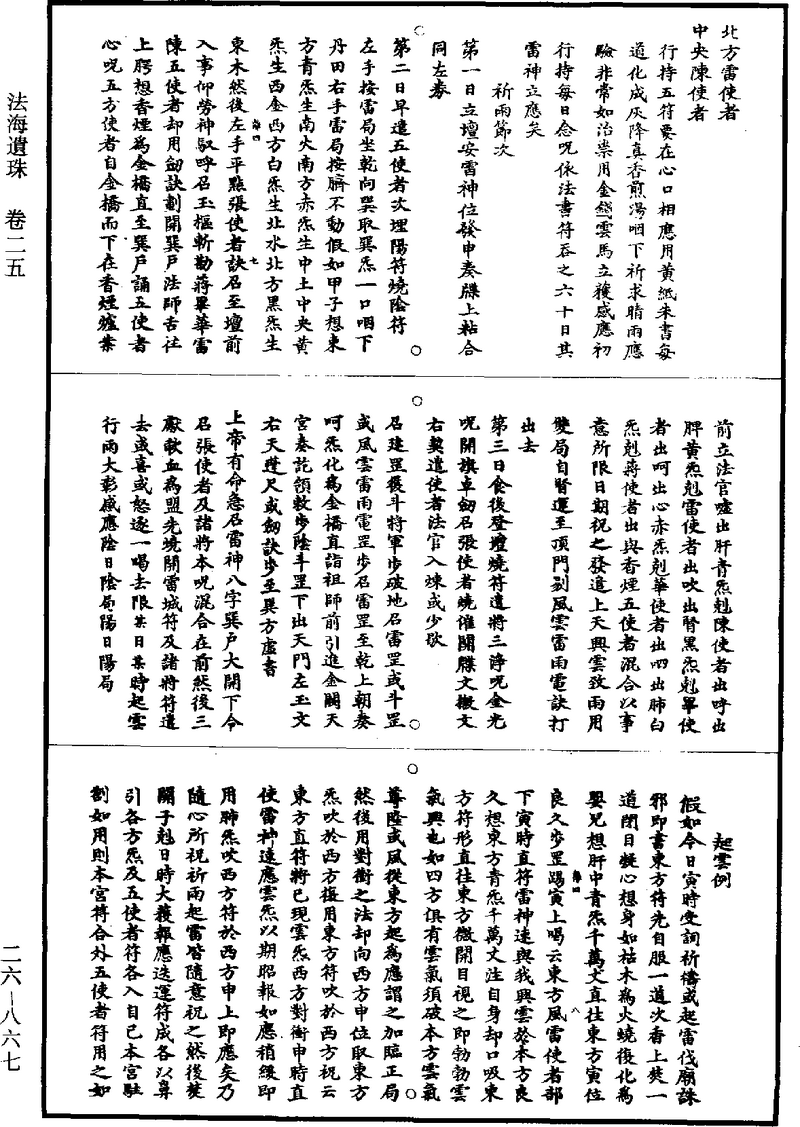 北方雷使者
中央陳使者
行持五符要在心口相應用黃紙朱書每
道化成灰降真香煎湯咽下祈求晴雨應
驗非常如治祟用金錢雲馬立獲感應初
行持每日念呪依法書符吞之六十日其
雷神立應矣
祈雨節次
第一日立壇安雷神位發申奏牒上粘合
同左券
第二日早遣五使者次埋陽符燒陰符
左手按雷局坐乾向巽取巽炁一口咽下
丹田右手雷局按臍不動假如甲子想東
方青炁生南火南方赤炁生中土中央黃
炁生西金西方白炁生北水北方黑炁生
東木然後左手平點張使者訣召至壇前
入事仰勞神馭呼召玉樞斬勘蔣畢華雷
陳五使者却用劍訣劃開巽戶法師舌拄
上腭想香煙為金橋直至巽戶誦五使者
心呪五方使者自金橋而下在香煙爐案
前立法官噓出肝青炁剋陳使者出呼出
脾黃炁剋雷使者出吹出腎黑炁剋畢使
者出呵出心赤炁剋華使者出呬出肺白
炁剋蔣使者出與香煙五使者混合以事
意所限日期祝之發遣上天興雲致雨用
雙局自腎運至頂門剔風雲雷雨電訣打
出去
第三日食後登壇燒符遣將三淨呪金光
呪開旗卓劍召張使者燒催關牒文檄文
右契遣使者法官入煉或少歇
召建罡後斗將軍步破地召雷罡或斗罡
或風雲雷雨電罡步召雷罡至乾上朝奏
呵炁化為金橋直詣祖師前引進金闕天
宮奏訖領敕步陰斗罡下出天門左玉文
右天蓬尺或劍訣步至巽方虛書
上帝有命急召雷神八字巽戶大開下令
召張使者及諸將本呪混合在前然後三
獻歃血為盟先燒開雷城符及諸將符遣
去或喜或怒逐一喝去限某日某時起雲
行雨大彰感應陰日陰局陽日陽局
起雲例
假如今日寅時受詞祈禱或起雷伐廟誅
邪即書東方符先自服一道次香上焚一
道閉目凝心想身如枯木為火燒後化為
嬰兒想肝中青炁千萬丈直往東方寅位
良久步罡踢寅上喝云東方風雷使者部
下寅時直符雷神速與我興雲於本方良
久想東方青炁千萬丈注自身却口吸東
方符形直往東方微開目視之即勃勃雲
氣興也如四方俱有雲氣須破本方雲氣
尊陞或風從東方起為應謂之加臨正局
然後用對衝之法却向西方申位取東方
炁吹於西方復用東方符吹於西方祝云
東方直符將已現雲炁西方對衝申時直
使雷神速應雲炁以期昭報如應稍緩即
用肺炁吹西方符於西方申上即應矣乃
隨心所祝祈雨起雷皆隨意祝之然後焚
關子剋日時大獲報應迭運符成各以鼻
引各方炁及五使者符各入自己本宮駐
劄如用則本宮符合外五使者符用之如
法海遺珠 卷二五
二六—八六七